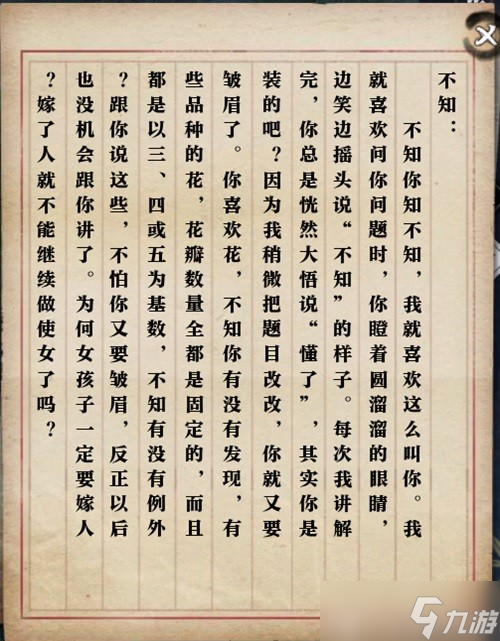 不知：
不知你知不知，我就喜欢这么叫你。我
就喜欢问你问题时，你瞪着圆溜溜的眼睛，
边笑边摇头说“不知”的样子。每次我讲解
完，你总是恍然大悟说“懂了”，其实你是
装的吧？因为我稍微把题目改改，你就又要
皱眉了。你喜欢花，不知你有没有发现，有
些品种的花，花瓣数量全都是固定的，而且
都是以三、四或五为基数，不知有没有例外
？跟你说这些，不怕你又要皱眉，反正以后
也没机会跟你讲了。为何女孩子一定要嫁人
？嫁了人就不能继续做使女了吗？
九游